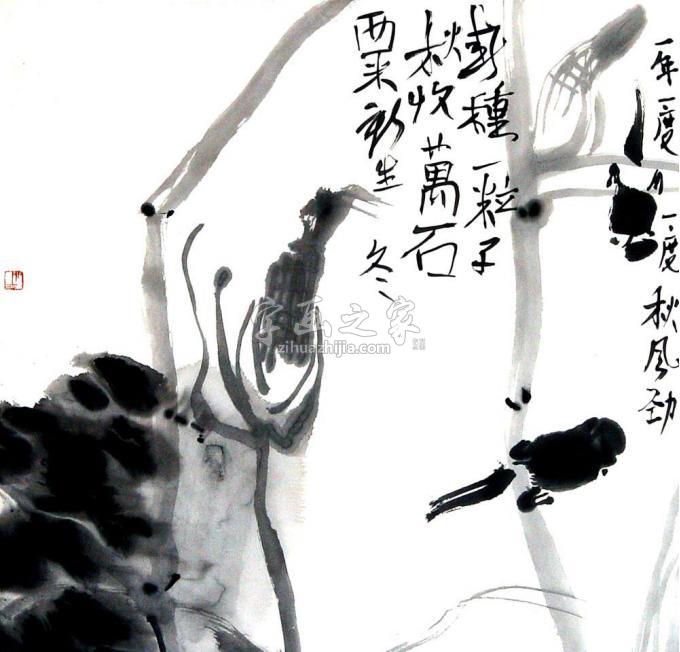 一年一度
一度秋风劲
種一粒子
秋收萬石
生 冬
字画之家
zihuazhijia.com